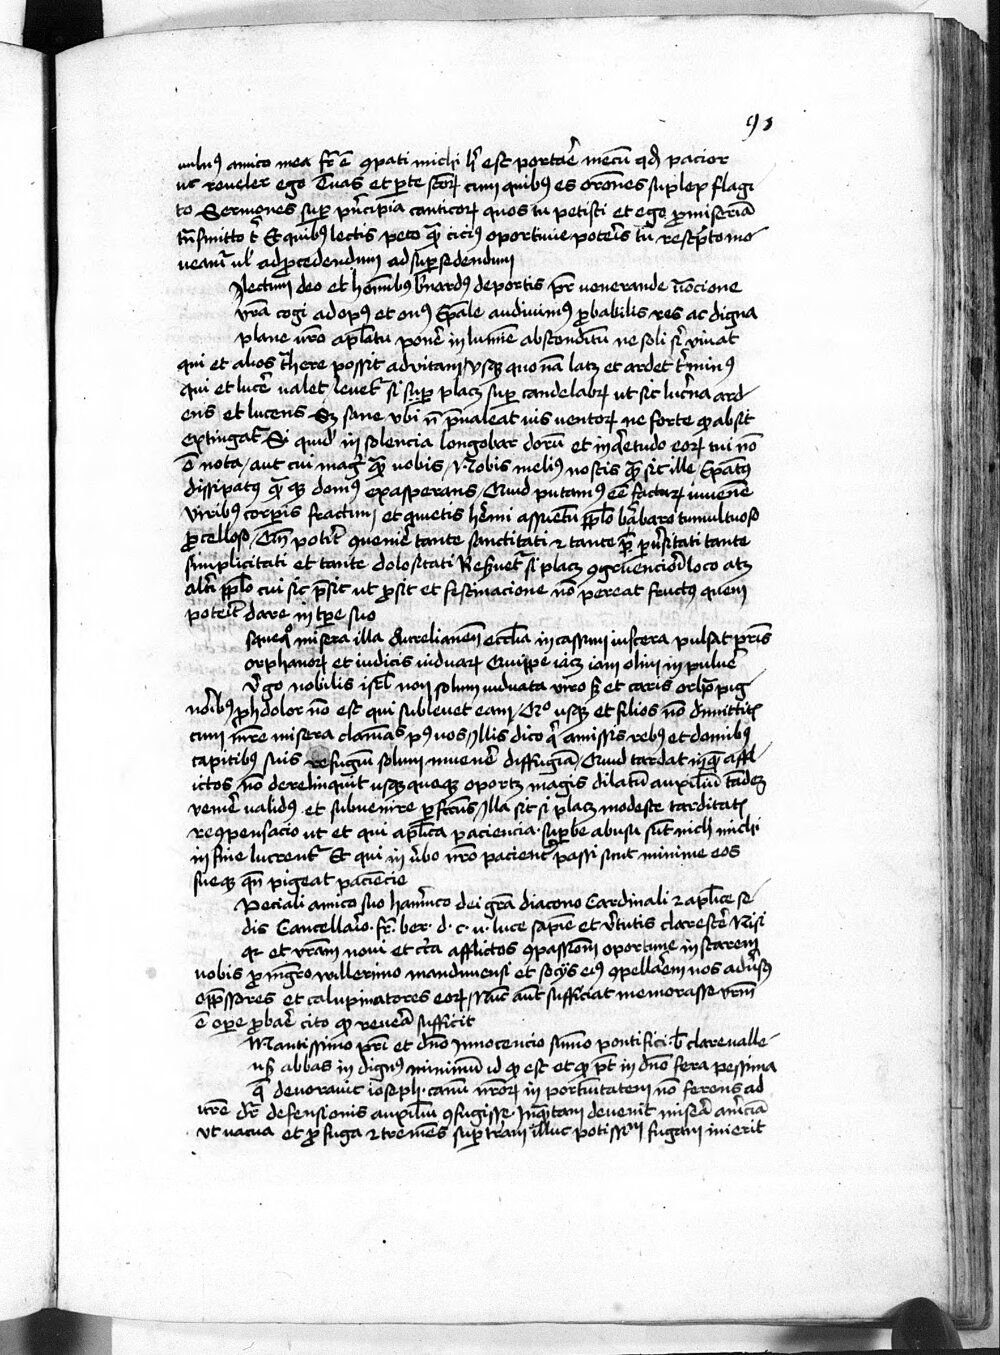 93
uulnus amico mea fr̄ ē ꝯpati michi hͥ est portar̄e mecū qd̄ pacior
ut reueler ego Tuas et per te sc̄orꝫ cum quibus es or̄ones suplex flagi
to Sermones sup pͥncipia canticorꝫ quos tu petisti et ego ꝓmiserā
tͣnsmitto tͥ Et quibus lectis peto qͣm cicius oportune poteris tu rescͥpto mo
ueam̄ ul̓ ad ꝓcedendum ad supersedendum
Dilectum deo et hominibus b̓nardus de portis pr̄ uenerande uocione
vr̄a cogi ad opus et onus ep̄ale audiuimus ꝓbabilis res ac digna
plane uro apl̄atu poner̄e in lumine absconditū ne soli sͥ uiuat
qui et alios tͣhere possit ad vitam vsqꝫ quo nā latꝫ et ardet tm̄ minus
qui et lucer̄e ualet leuetur si placꝫ super candelabrꝫ ut sit lucͥna ard
ens et lucens Sꝫ sane vbi nō p̄ualeat uis uentorꝫ ne forte ꝙ absit
extingat̄ Si quid̓ insolencia longobardorū et inq̓etudo eorꝫ cui nō
ē nota aut cui magis qͣm uobis Vobis melius nostis qͣm sit ille ep̄atus
dissipatus qͣm qꝫ domus exasperans Quid putamus eē facturꝫ iuuenē
viribus corporis fractum et quietis hͤremi assuetū pplo barbaro tumultuoso
ꝓcelloso Qn̄ poterit ꝯuenire tante sanctitati ⁊ tante puersitati tante
simplicitati et tante dolositati Reseruetur si placꝫ ꝯgruenciori loco atqꝫ
alteri pplo cui sic p̄sit ut ꝓsit et festinacione nō pereat fructus quem
poterit dare in tp̄e suo
Usqueqͦ misera illa Aurelianen̄ ecclīa in cassum uiscera pulsat pr̄is
orphanorꝫ et iudicis uiduarꝫ Quippe iacꝫ iam olim in puluer̄e
Virgo nobilis isrl̄ non solum uiduata uiro sꝫ et caris orbata pig
norībus ꝓh dolor nō est qui subleuet eam Qͦ usqꝫ et filios nō dimittitis
cum mr̄e misera clamantes pͥ uos Illis dico qͥ amissis rebus et domibus
capitibus suis refugium solum inuener̄e diffugium Quid tardat
ictos nō derelinquit usqꝫquaqꝫ oportꝫ magis dilatū auxilium tādeꝫ
uenire ualidius et subuenire perfectius Illa sit si placꝫ modeste tarditatis
recompensacio ut et qui apl̄ica paciencia superbe abusi sūt nichil michi
in fine lucrentͬ Et qui in ūbo uro pacienter passi sunt minime eos
sueqꝫ qn̄ pigeat paciencie
Speciali amico suo haīmrico dei gr̄a diacono Cardinali ⁊ apl̄ice se
dis Cancellario fr̄ ber. d. c. u. luce sapien̄ et virtutis clarescere Nisi
qꝛ et vr̄am noui et circa afflictos ꝯpassionem oportune instarem
uobis ꝓ magr̄o willermo mandunensi et socijs eius ꝯpellarem uos aduersus
oppressores et calupmatores eorꝫ Nunc aut̄ sufficiat memorasse vr̄m
ē ope ꝓbare cito ꝙ reuera sufficit
Amantissimo pr̄i et dn̄o Innocencio sūmo pontifici b̓ clareualle
n̄ abbas indignus minimū id ꝙ est et ꝙ pōt in dn̄o fera pessima
qͣ deuorauit ioseph canū nr̄orꝫ inportunitatem nō ferens ad
ur̄e dr̄ defensionis auxilium ꝯfugisse
vt uacua et ꝓfuga ⁊ tremens super terram illuc potissimū fugam inierit